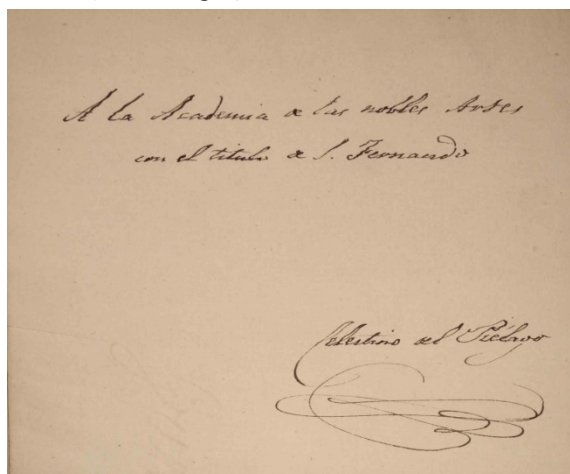 A la Academia de las nobles Artes
con el titulo de S. Fernando
Celestino del Piélago